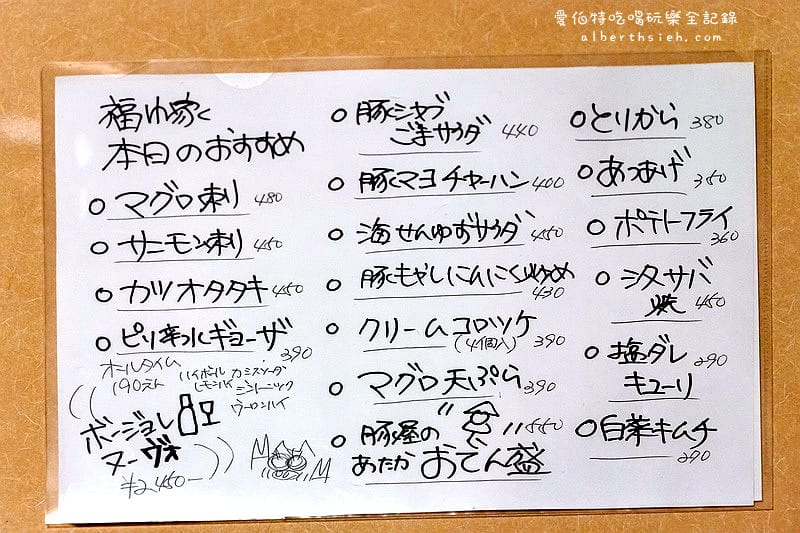 愛伯特吃喝玩樂全記錄
alberthsieh.com
本日のおすすめ
マグロ刺り 480
サーモン刺り 450
カツオタタキ 450
ピリ辛ホルギョーザ 390
オールタイム
190えん
ハイボール カシスソーダ
レモンハイ
ウーロンハイ
ボージョレ
ヌーヴォ
¥2,450-
豚シャブ
ごまサラダ 440
豚マヨチャーハン 400
海せんゆずサラダ 450
豚もやしにんにく炒め
430
クリームコロッケ
(4個入) 390
マグロ天ぷら 390
豚屋の 550
あたか おでん盛
とりから 380
あつあげ 350
ポテトフライ
360
シメサバ
焼 450
塩ダレ 290
キューリ
白菜キムチ
290